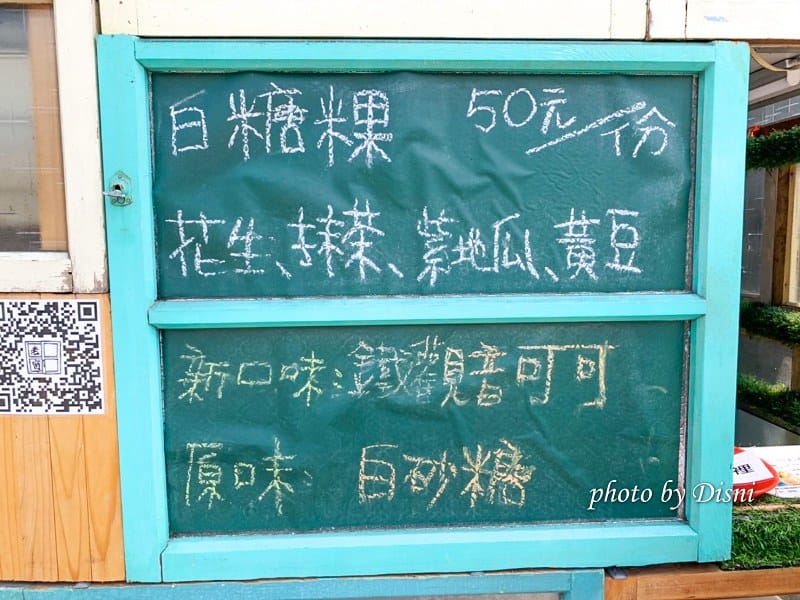 白糖粿 50元/份
花生、抹茶、紫地瓜、黃豆
新口味:鐵觀音可可
原味 白砂糖
photo by Disni